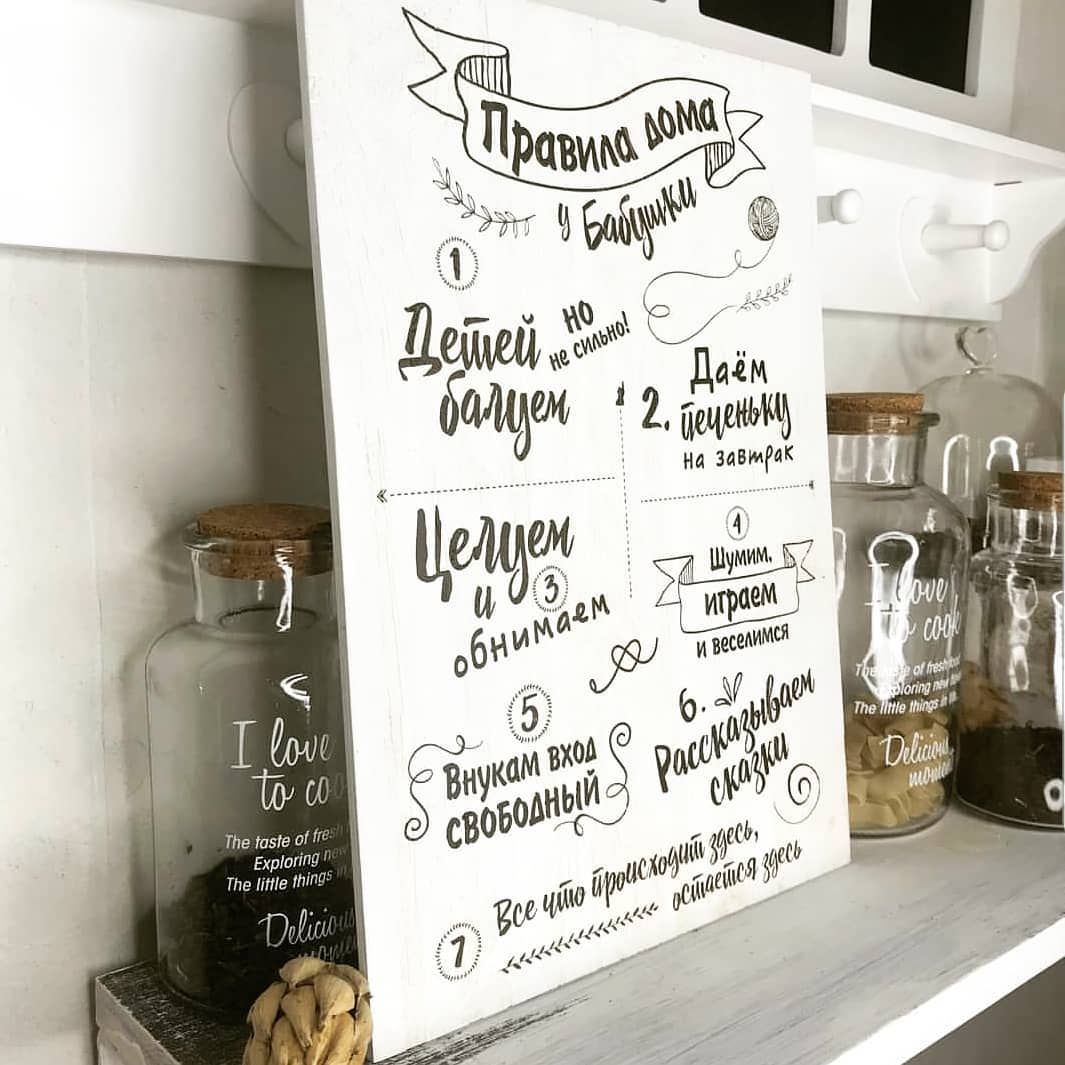 Правила дома
у Бабушки
1
Детей
но
не сильно!
балуем
2.
Даём
печеньку
на завтрак
Целуем
и
3
обнимаем
4
Шумим,
играем
и веселимся
5
Внукам вход
свободный
6.
Рассказываем
сказки
7
Все что происходит здесь,
остается здесь
I love
to
The taste of
Exploring
The little things
Delicious
I love
to cook
The taste of fresh food
Exploring new
The little things in
Delicious